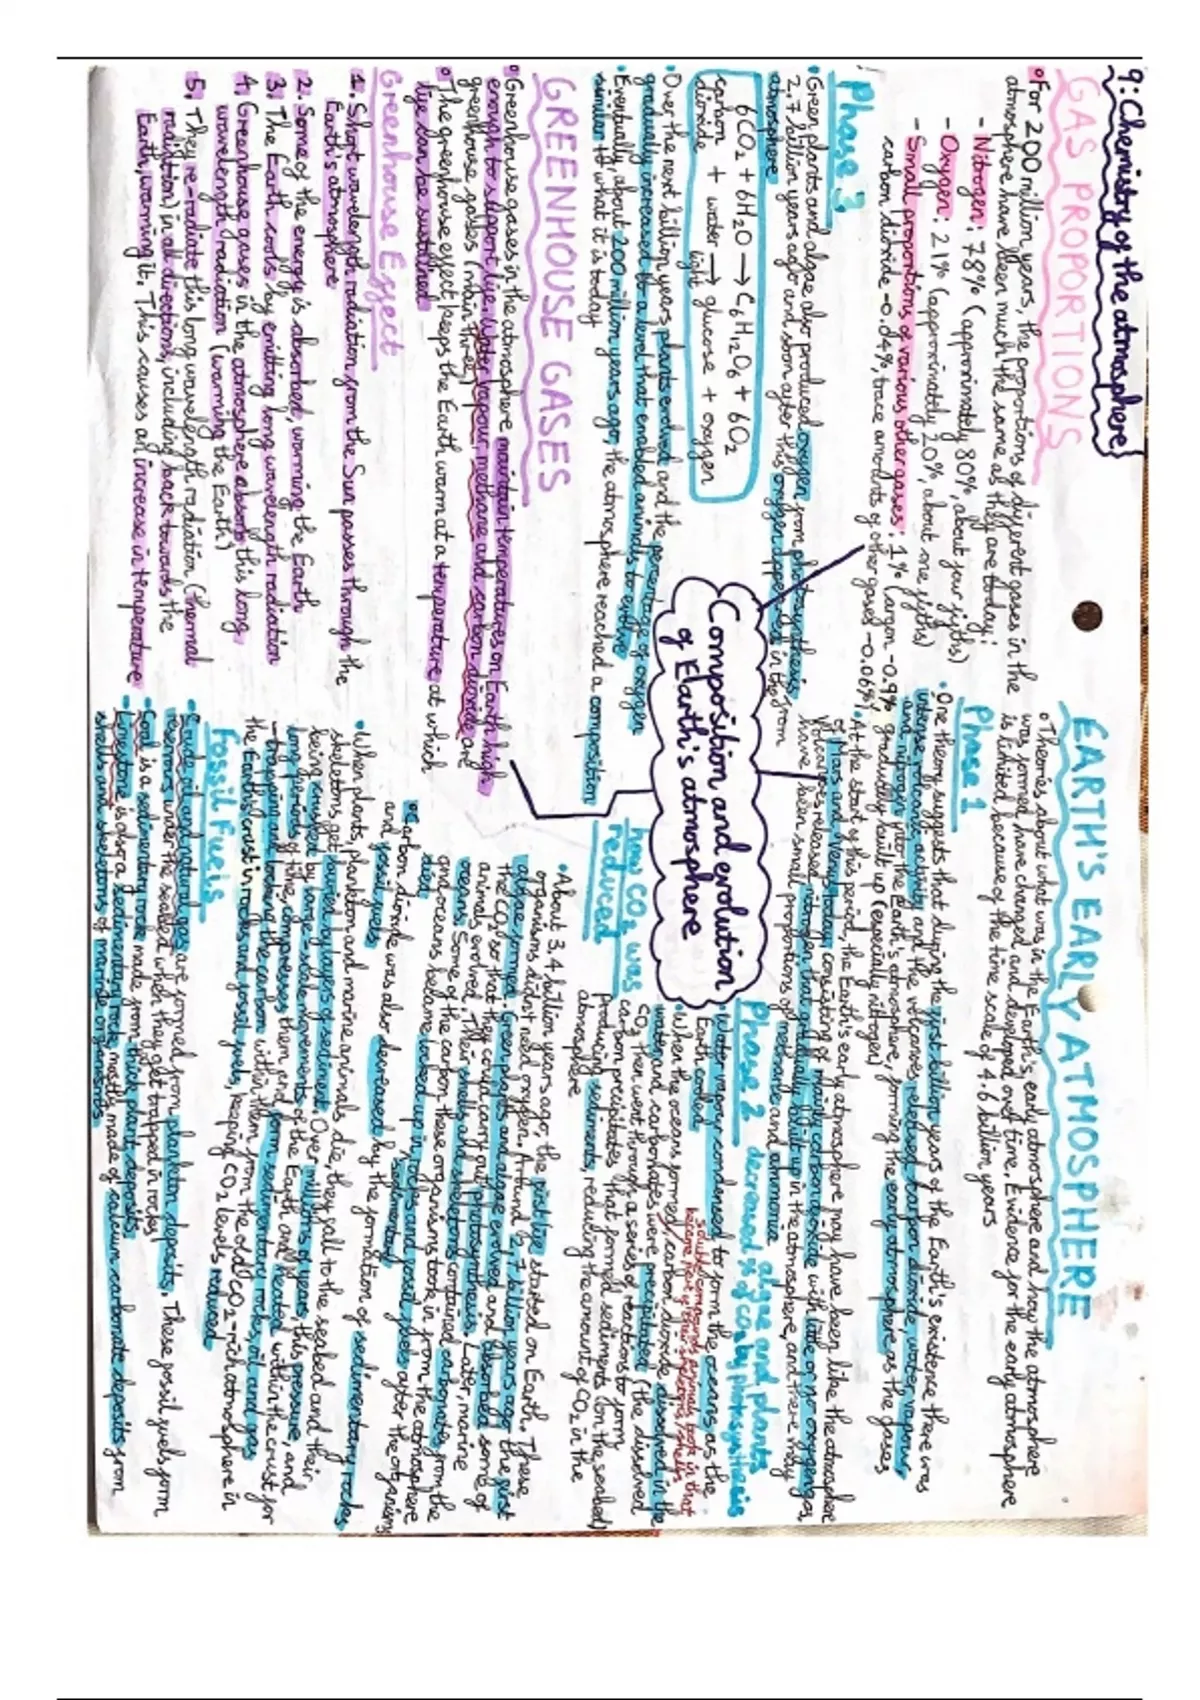 9: Chemistry of the atmosphere
GAS PROPORTIONS
For 200 million years, the proportions of different gases in the
atmosphere have been much the same as they are today:
- Nitrogen: 78% (approximately 80%, about four fifths)
- Oxygen: 21% (approximately 20%, about one fifth)
- Small proportions of various other gases: 1% (argon -0.9%
carbon dioxide -0.04%, trace amounts of other gases -0.06%)
Phase 3,
Green plants and algae also produced oxygen from photosynthesis
2.7 billion years ago and soon after this oxygen appeared in the
atmosphere
6CO2 + 6H2O → C6H12O6 + 6O2
carbon + water → glucose + oxygen
dioxide light
Over the next billion years plants evolved and the percentage of oxygen
gradually increased to a level that enabled animals to evolve
Eventually, about 200 million years ago, the atmosphere reached a composition
similar to what it is today
GREENHOUSE GASES
Greenhouse gases in the atmosphere maintain temperatures on Earth high
enough to support life. Water vapour, methane and carbon dioxide are
greenhouse gases (main three)
The greenhouse effect keeps the Earth warm at a temperature at which
life can be sustained
Greenhouse Effect
1. Short wavelength radiation from the Sun passes through the
Earth's atmosphere
2. Some of the energy is absorbed, warming the Earth
3. The Earth cools by emitting long wavelength radiation
4. Greenhouse gases in the atmosphere absorb this long
wavelength radiation (warming the Earth)
5. They re-radiate this long wavelength radiation (thermal
radiation) in all directions, including back towards the
Earth, warming it. This causes an increase in temperature
Composition and evolution
of Earth's atmosphere
EARTH'S EARLY ATMOSPHERE
Theories about what was in the Earth's early atmosphere and how the atmosphere
was formed have changed and developed over time. Evidence for the early atmosphere
is limited because of the time scale of 4.6 billion years
Phase 1
One theory suggests that during the first billion years of the Earth's existence there was
intense volcanic activity and the volcanoes released carbon dioxide, water vapour,
and nitrogen into the Earth's atmosphere, forming the early atmosphere as the gases
gradually built up (especially nitrogen)
At the start of this period, the Earth's early atmosphere may have been like the atmosphere
of Mars and Venus today, consisting of mainly carbon dioxide with little or no oxygen gas
Volcanoes released nitrogen that gradually built up in the atmosphere, and there may
have been small proportions of methane and ammonia
Phase 2 decreased % of CO2 by photosynthesis
algae and plants
Water vapour condensed to form the oceans, as the
Earth cooled
soluble compounds animals took in that
became part of their skeletons/shells
When the oceans formed, carbon dioxide dissolved in the
water and carbonates were precipitated (the dissolved
CO2 then went through a series of reactions to form
carbon precipitates that formed sediments (on the seabed)
producing sediments, reducing the amount of CO2 in the
atmosphere
how CO2 was
reduced
About 3.4 billion years ago, the first life started on Earth. These
organisms didn't need oxygen. Around 2.7 billion years ago the first
algae formed. Green plants and algae evolved and absorbed some of
the CO2 so that they could carry out photosynthesis. Later, marine
animals evolved. Their shells and skeletons contained carbonates from the
oceans. Some of the carbon these organisms took in from the atmosphere
and oceans became locked up in rocks and fossil fuels after the organisms
died
sedimentary
Carbon dioxide was also decreased by the formation of sedimentary rocks
and fossil fuels
When plants, plankton and marine animals die, they fall to the seabed and their
skeletons get buried by layers of sediment. Over millions of years, this pressure, and
being crushed by large-scale movements of the Earth and heated within the crust for
long periods of time, compresses them and form sedimentary rocks, oil and gas
- trapping and locking the carbon within them from the old CO2-rich atmosphere in
the Earth's crust in rocks and fossil fuels, keeping CO2 levels reduced
Fossil Fuels
Crude oil and natural gas are formed from plankton deposits. These fossil fuels form
reservoirs under the seabed when they get trapped in rocks
Coal is a sedimentary rock made from thick plant deposits
Limestone is also a sedimentary rock, mostly made of calcium carbonate deposits from
shells and skeletons of marine organisms